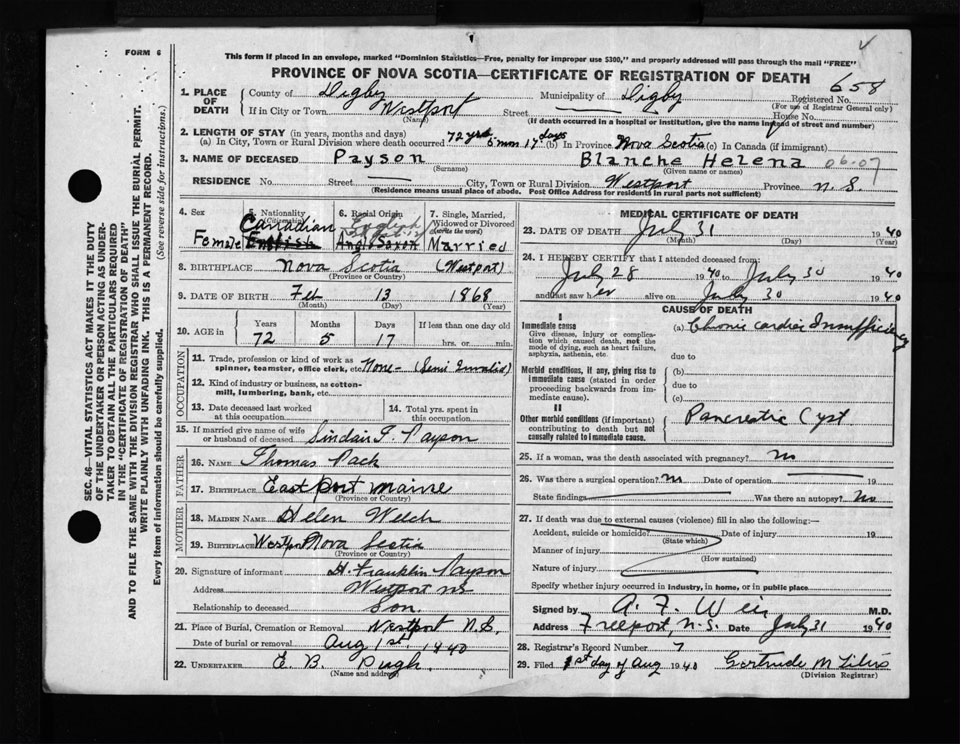 FORM 6
This form if placed in an envelope, marked "Dominion Statistics—Free, penalty for improper use $300," and properly addressed will pass through the mail "FREE"
PROVINCE OF NOVA SCOTIA—CERTIFICATE OF REGISTRATION OF DEATH
658
1. PLACE OF DEATH
County of Digby Municipality of Digby Registered No.
(For use of Registrar General only)
If in City or Town Westport Street House No.
(Name) (If death occurred in a hospital or institution, give the name instead of street and number)
2. LENGTH OF STAY (in years, months and days)
(a) In City, Town or Rural Division where death occurred 72 yrs 5 mon 17 days (b) In Province Nova Scotia (c) In Canada (if immigrant)
3. NAME OF DECEASED Payson Blanche Helena 06.07
(Surname) (Given name or names)
RESIDENCE No. Street City, Town or Rural Division Westport Province N.S.
(Residence means usual place of abode. Post Office Address for residents in rural parts not sufficient)
4. Sex Female
5. Nationality (Citizenship) Canadian English
6. Racial Origin English Anglo Saxon
7. Single, Married, Widowed or Divorced (write the word) Married
8. BIRTHPLACE Nova Scotia (Westport)
(Province or Country)
9. DATE OF BIRTH Feb 13 1868
(Month) (Day) (Year)
10. AGE in Years Months Days If less than one day old
72 5 17 hrs. or min.
OCCUPATION
11. Trade, profession or kind of work as spinner, teamster, office clerk, etc. None - (Semi Invalid)
12. Kind of industry or business, as cotton-mill, lumbering, bank, etc.
13. Date deceased last worked at this occupation
14. Total yrs. spent in this occupation
15. If married give name of wife or husband of deceased Sinclair F. Payson
FATHER
16. NAME Thomas Pack
17. BIRTHPLACE East Port Maine
(Province or Country)
MOTHER
18. MAIDEN NAME Helen Welch
19. BIRTHPLACE Westport Nova Scotia
(Province or Country)
20. Signature of informant H. Franklin Payson
Address Westport NS
Relationship to deceased Son.
21. Place of Burial, Cremation or Removal Westport N.S.
Date of burial or removal Aug 1st 1940
22. UNDERTAKER E. B. Pugh.
(Name and address)
MEDICAL CERTIFICATE OF DEATH
23. DATE OF DEATH July 31 1940
(Month) (Day) (Year)
24. I HEREBY CERTIFY that I attended deceased from:
July 28 1940 to July 30 1940
and last saw her alive on July 30 1940
CAUSE OF DEATH
I
Immediate cause
Give disease, injury or complication which caused death, not the mode of dying, such as heart failure, asphyxia, asthenia, etc.
(a) Chronic cardiac Insufficiency
due to
Morbid conditions, if any, giving rise to immediate cause (stated in order proceeding backwards from immediate cause).
(b)
due to
(c)
II
Other morbid conditions (if important) contributing to death but not causally related to immediate cause.
Pancreatic Cyst
25. If a woman, was the death associated with pregnancy? No
26. Was there a surgical operation? No Date of operation 19
State findings Was there an autopsy? No
27. If death was due to external causes (violence) fill in also the following:—
Accident, suicide or homicide? Date of injury 19
(State which)
Manner of injury
(How sustained)
Nature of injury
Specify whether injury occurred in industry, in home, or in public place
Signed by A. F. Weir M.D.
Address Freeport, N.S. Date July 31 1940
28. Registrar's Record Number 7
29. Filed 1st day of Aug 1940 Gertrude M
(Division Registrar)
SEC. 46—VITAL STATISTICS ACT MAKES IT THE DUTY
OF THE UNDERTAKER OR PERSON ACTING AS UNDER-
TAKER TO OBTAIN ALL THE PARTICULARS REQUIRED
IN THE "CERTIFICATE OF REGISTRATION OF DEATH"
AND TO FILE THE SAME WITH THE DIVISION REGISTRAR WHO SHALL ISSUE THE BURIAL PERMIT.
WRITE PLAINLY WITH UNFADING INK. THIS IS A PERMANENT RECORD.
Every item of information should be carefully supplied. (See reverse side for instructions.)